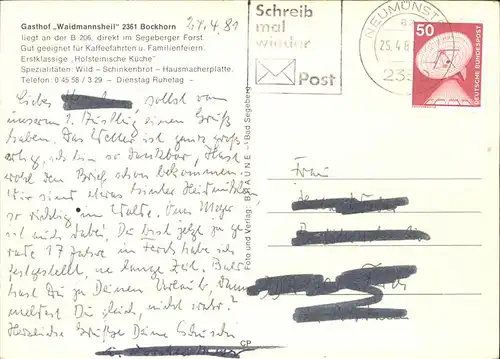 Gasthof „Waidmannsheil" 2361 Bockhorn
liegt an der B 206, direkt im Segeberger Forst.
Gut geeignet für Kaffeefahrten u. Familienfeiern.
Erstklassige „Holsteinische Küche"
Spezialitäten: Wild – Schinkenbrot – Hausmacherplatte.
Telefon: 0 45 58 / 3 29 – Dienstag Ruhetag –
24.4.81
Schreib
mal
wieder
Post
NEUMÜNSTER
25.4.8
23
50
DEUTSCHE BUNDESPOST
Liebe sollst vom
unserem 1. Ausflug einen Gruß
haben. Das Wetter ist ganz groß
artig, ich bin so dankbar, Hast
wohl den Brief schon bekommen.
Wir sind etwas hinter Heidmühlen,
so richtig im Walde.
mit, dabei. Du bist jetzt ge
rade 17 Jahre in habe ich
festgestellt, ne lange Zeit. Bald
hast Du ja Deinen Urlaub, dann
meldest Du gleich, nicht wahr?
Herzliche Grüße Deine
Foto und Verlag: BRAUNE - Bad Segeberg
CP
Frau